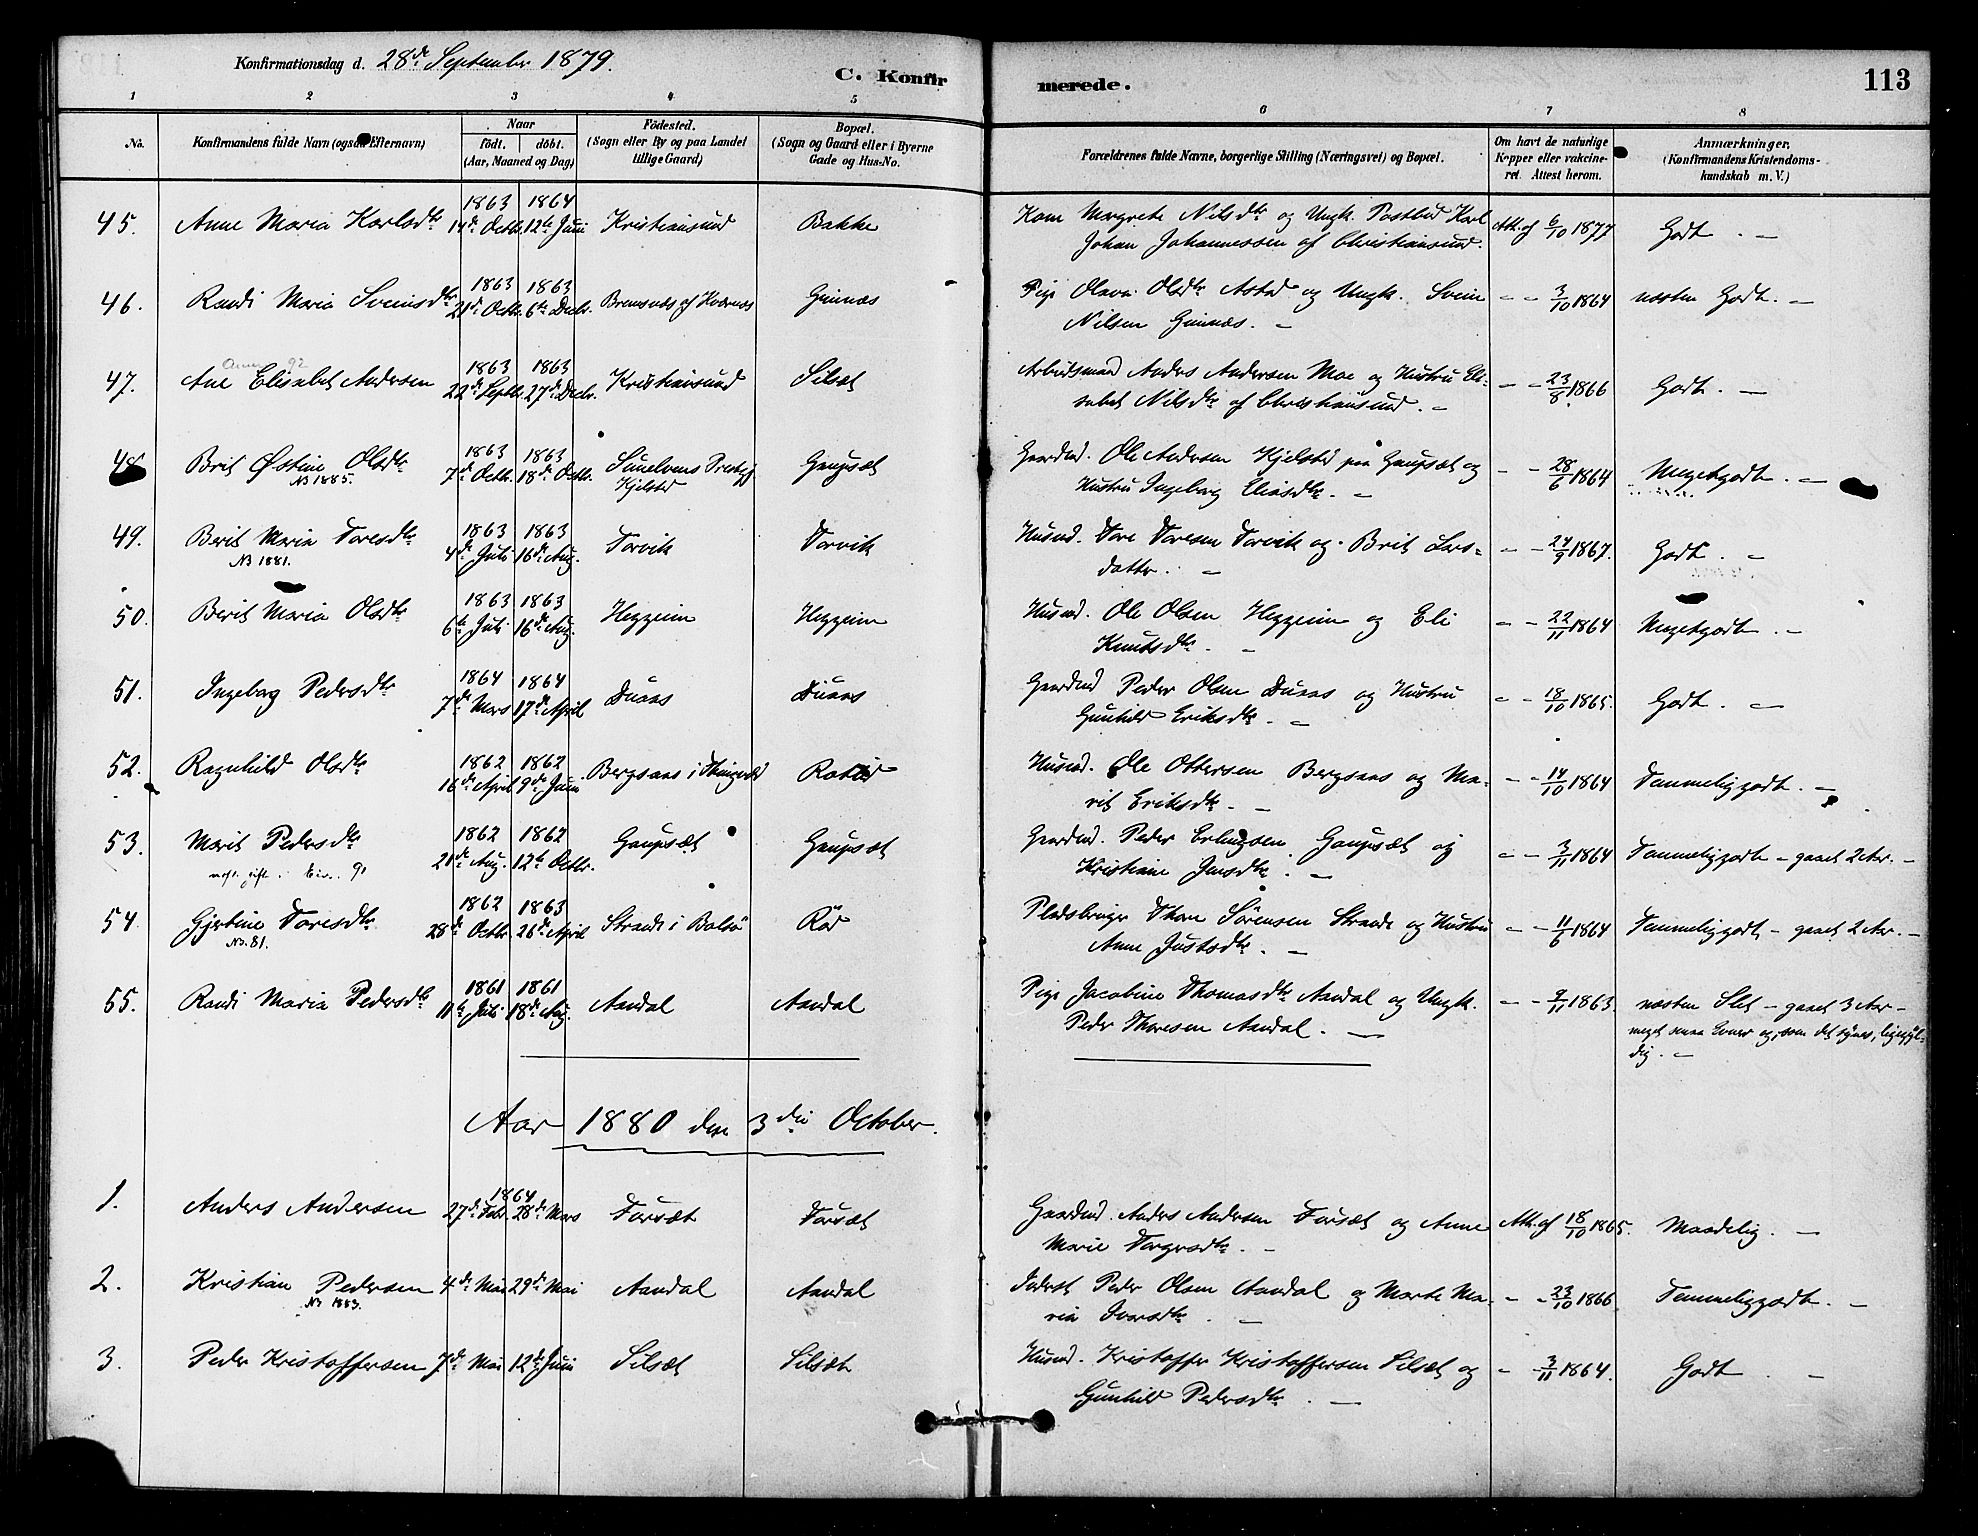 Konfirmationsdag d. 28de September 1879.
C. Konfirmerede.
113
1 2 3 4 5 6 7 8
No.
Konfirmandens fulde Navn (ogsaa Efternavn)
Naar
födt. döbt.
(Aar, Maaned og Dag)
Födested.
(Sogn eller By og paa Landet
tillige Gaard)
Bopæl.
(Sogn og Gaard eller i Byerne
Gade og Hus-No.
Forældrenes fulde Navne, borgerlige Stilling (Næringsvei) og Bopæl.
Om havt de naturlige
Kopper eller vakcine-
ret. Attest herom.
Anmærkninger.
(Konfirmandens Kristendoms-
kundskab m. V.)
45. Anne Maria Karlsdtr 1863 14de Octbr. 1864 12te Juni Kristiansund Bakke
Kone Margrete Nilsdtr og Ungk. Postbud Karl
Johan Johannessen af Christiansund.
Att. af 6/10 1877 Godt. –
46. Randi Maria Svensdtr 1863 21de Octbr. 1863 6te Decbr. Bremsnæs af Kvernæs Gimnæs
Pige Olava Olsdtr Astad og Ungk. Svein
Nilsen Gimnæs. –
" – 3/10 1864 næsten Godt. –
47. Ane Elisabet Andersen 1863 22de Septbr. 1863 27de Decbr. Kristiansund Silsæt
Arbeidsmand Anders Andersen Moe og Hustru Eli-
sabet Nilsdtr af Christiansund. –
" – 23/8 1866 Godt. –
48. Brit Østine Olsdtr 1863 7de Octbr. 1863 18de Octbr. Sunelvens Prestgj. Gaupsæt
N3 1885. Kjelstd
Gaardmd. Ole Andersen Kjelstd paa Gaupsæt og
Hustru Ingeborg Eliasdtr. –
" – 28/6 1864 Megetgodt. –
49. Berit Maria Toresdtr 1863 4de Juli 1863 16de Aug. Torvik Torvik
N3 1881.
Husmd. Tore Toresen Torvik og Brit Lars-
datter. –
" – 24/9 1867. Godt. –
50. Berit Maria Olsdtr 1863 6te Juli 1863 16de Aug. Heggeim Heggeim
Husmd. Ole Olsen Heggeim og Eli
Knutsdtr. –
" – 22/11 1864 Megetgodt. –
51. Ingeborg Pedersdtr 1864 7de Mars 1864 17de April Duaas Duaas
Gaardmd Peder Olsen Duaas og Hustru
Gunhild Eriksdtr. –
" – 18/10 1865. Godt. –
52. Ragnhild Olsdtr 1862 16de April 1862 9de Juni Bergsaas i Thingvold
Husmd. Ole Ottersen Bergsaas og Ma-
rit Eriksdtr. –
" – 14/10 1864 Temmeliggodt. –
53. Marit Pedersdtr 1862 21de Aug. 1862 12te Octbr. Gaupsæt Gaupsæt
Gaardmd. Peder Erlingsen Gaupsæt og
Kristiane Jensdtr. –
" – 3/11 1864 Temmeliggodt – gaaet 2 Aar. –
54 Gjertine Toresdtr 1862 28de Octbr. 1863 26de April Strande i Bolsö Röd
N3. 81.
Pladsbruger Thore Sørensen Strande og Hustru
Anne Justsdtr. –
" – 11/6 1864 Temmeliggodt – gaaet 2 Aar. –
55. Randi Maria Pedersdtr 1861 11te Juli 1861 18de Aug. Aandal Aandal
Pige Jacobine Thomasdtr Aandal og Ungk.
Peder Thoresen Aandal. –
" – 9/11 1863. næsten Slet – gaaet 3 Aar –
meget smaa Evner og, som det synes, ligegyl-
dig. –
Aar 1880 den 3die October.
1. Anders Andersen 1864 27de Febr. 28de Mars Torsæt Torsæt
Gaardmd. Anders Andersen Torsæt og Anne
Marie Torgersdtr. –
Att. af 18/10 1865. Maadelig. –
2. Kristian Pedersen 4de Mai 29de Mai Aandal Aandal
N3 1883.
Inderst Peder Olsen Aandal og Marte Ma-
ria Ivarsdtr. –
" – 23/10 1866. Temmeliggodt. –
3. Peder Kristoffersen 7de Mai 12te Juni Silsæt Silsæt
Husmd. Kristoffer Kristoffersen Silsæt og
Gunhild Pedersdtr. –
" 3/11 1864. Godt. –